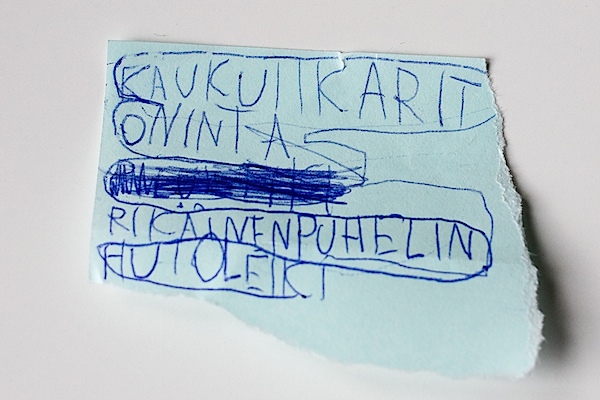 KAUKUIKARIT
ONINTA
RIKÄINENPUHELIN
AUTOLEIKI